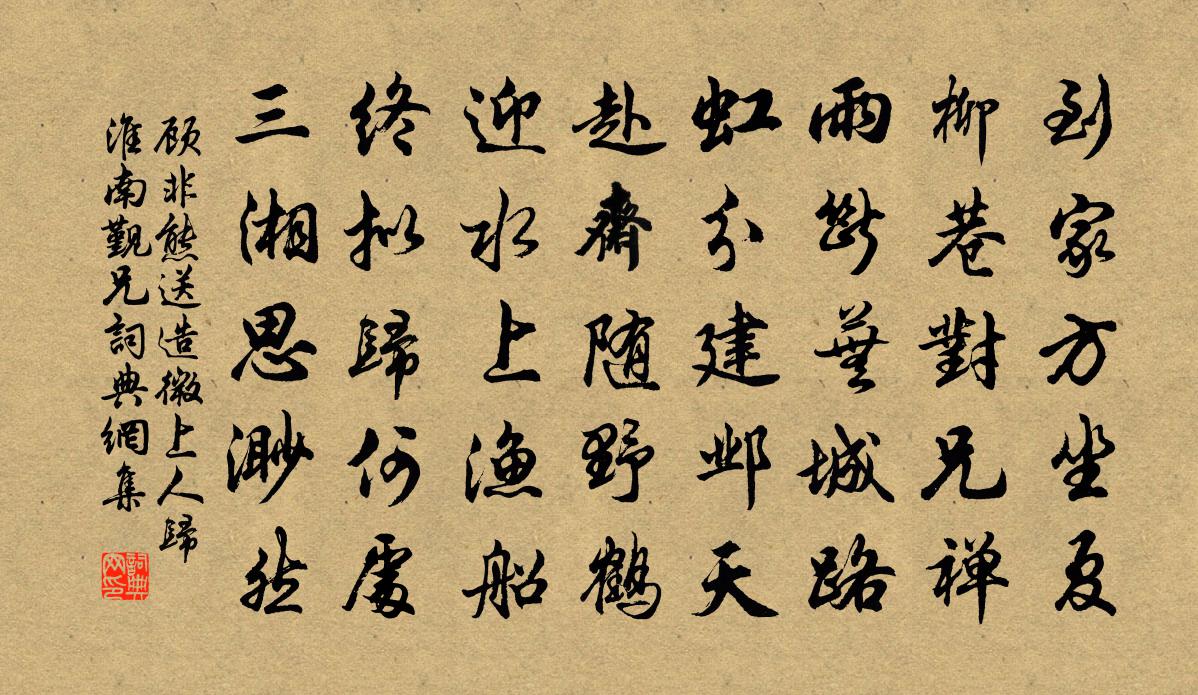 到家方坐夏
柳巷對兄禪
雨斷蕪城路
虹分建邺天
赴齋随野鶴
迎水上漁船
終拟歸何處
三湘思渺然
顾非熊送造微上人歸
淮南觐兄詞典網集
詞典網印